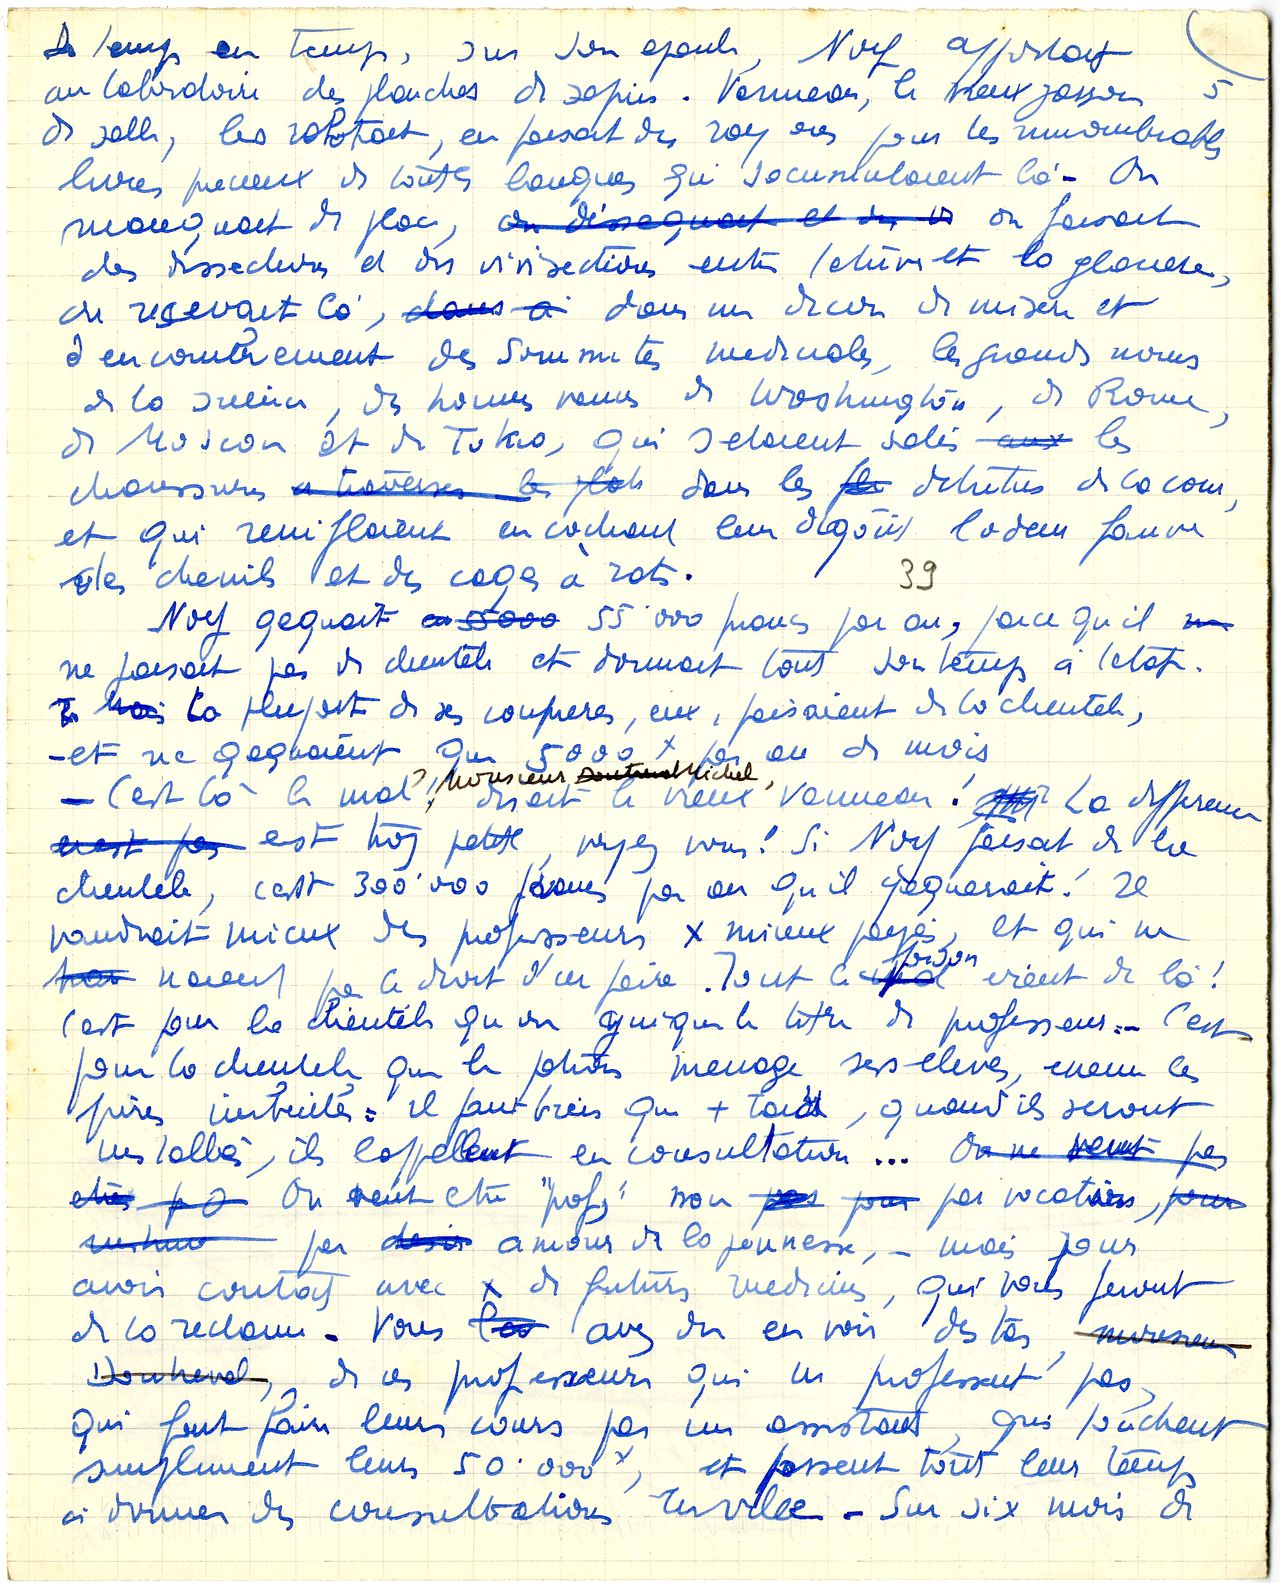 De temps en temps, sur son épaule, Norf apportait
au laboratoire des planches de sapin. Vanneau, le vieux garçon 5
de salle, les rabotait, en faisait des rayons pour les innombrables
livres précieux de toutes langues qui s'accumulaient là - On
manquait de place, on disséquait et on on faisait
des dissections et des vivisections entre l'étuve et la glacière,
on recevait là, dans un dans un décor de misère et
d'encombrement des sommités médicales, les grands noms
de la science, des hommes venus de Washington, de Rome,
de Moscou et de Tokio, qui s'étaient salis aux les
chaussures à travers les dans les détritus de la cour,
et qui reniflaient en cachant leur dégoût l'odeur fauve
des chenils et des cages à rats.
39
Norf gagnait 55000 55'000 francs par an, parce qu'il
ne faisait pas de clientèle et donnait tout son temps à l'état.
La plupart de ses confrères, eux, faisaient de la clientèle,
- et ne gagnaient que 5000 x par an de moins
Monsieur Doutreval Michel,
- C'est là le mal ! disait le vieux Vanneau ! La différence
n'est pas est trop petite, voyez vous ! Si Norf faisait de la
clientèle, c'est 300'000 francs par an qu'il gagnerait ! Il
vaudrait mieux des professeurs x mieux payés, et qui ne
n'aient pas le droit d'en faire. Tout le mal vient de là !
poison
C'est pour la clientèle qu'on brigue le titre de professeur.- C'est
pour la clientèle que le patron ménage ses élèves, même les
pires : il faut bien que + tard, quand ils seront
installés, ils l'appellent en consultation ... On ne veut pas
être On veut être "prof," non pas pour par vocation, pour
par désir amour de la jeunesse, - mais pour
avoir contact avec x de futurs médecins, qui vous feront
de la réclame - Vous avez dû en voir des tas, monsieur
Doutreval, de ces professeurs qui ne professent pas,
qui font faire leurs cours par un assistant, qui touchent
simplement leurs 50.000 x, et passent tout leur temps
à donner des consultations en ville - Sur six mois de